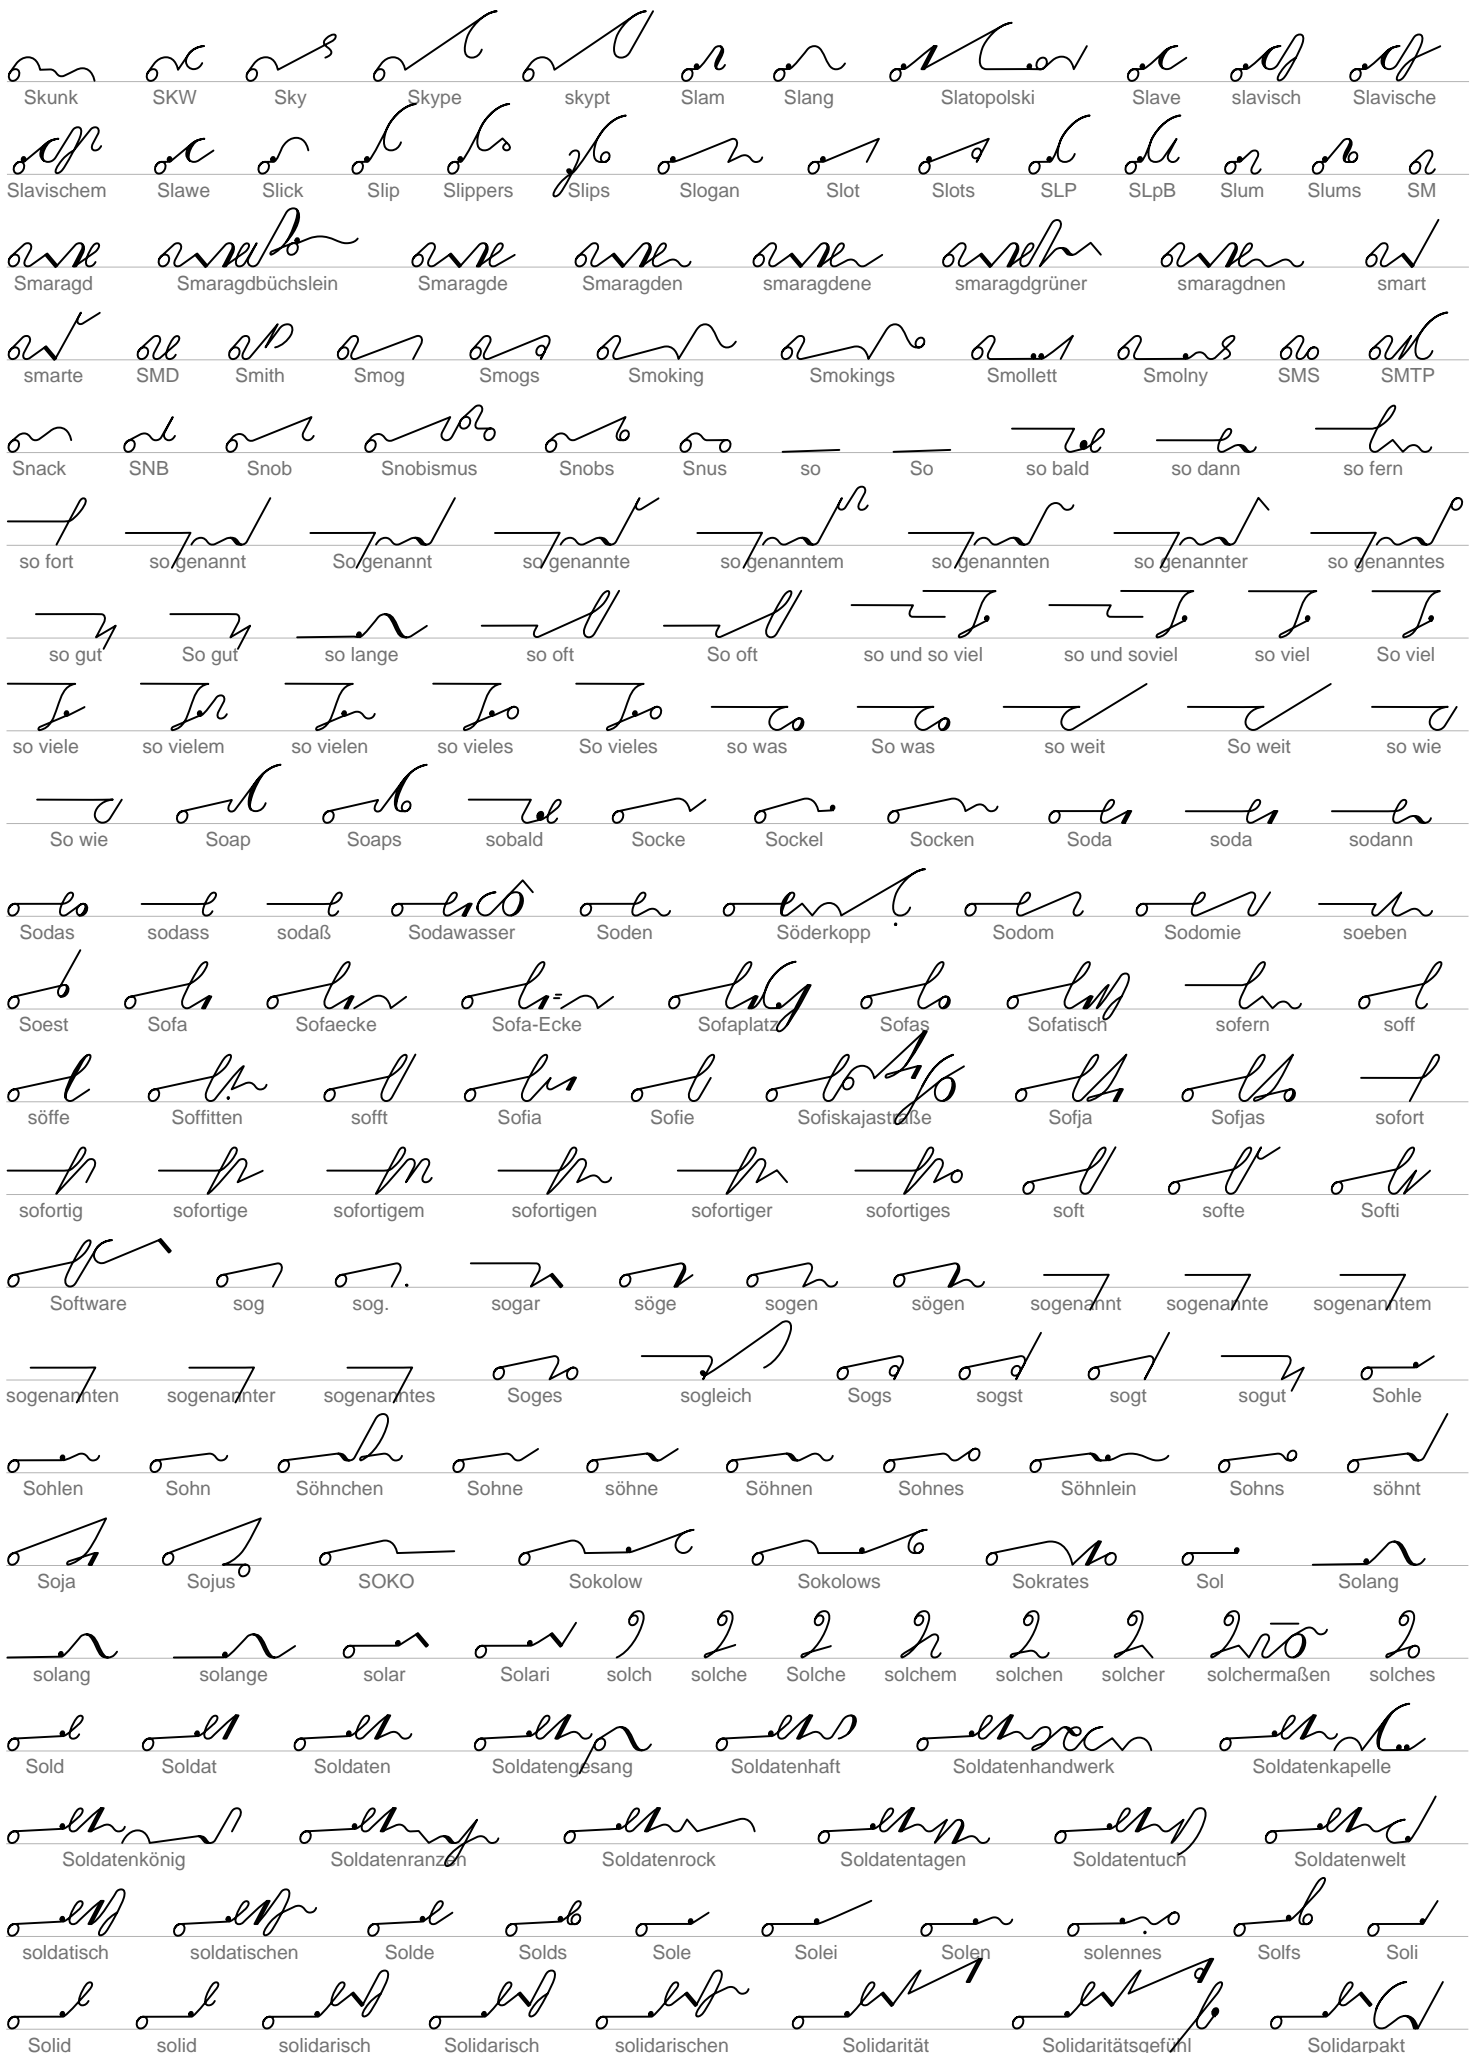 Skunk SKW Sky Skype skypt Slam Slang Slatopolski Slave slavisch Slavische
Slavischem Slawe Slick Slip Slippers Slips Slogan Slot Slots SLP SLpB Slum Slums SM
Smaragd Smaragdbüchslein Smaragde Smaragden smaragdene smaragdgrüner smaragdnen smart
smarte SMD Smith Smog Smogs Smoking Smokings Smollett Smolny SMS SMTP
Snack SNB Snob Snobismus Snobs Snus so So so bald so dann so fern
so fort so genannt So genannt so genannte so genanntem so genannten so genannter so genanntes
so gut So gut so lange so oft So oft so und so viel so und soviel so viel So viel
so viele so vielem so vielen so vieles So vieles so was So was so weit So weit so wie
So wie Soap Soaps sobald Socke Sockel Socken Soda soda sodann
Sodas sodass sodaß Sodawasser Soden Söderkopp Sodom Sodomie soeben
Soest Sofa Sofaecke Sofa-Ecke Sofaplatz Sofas Sofatisch sofern soff
söffe Soffitten sofft Sofia Sofie Sofiskajastraße Sofja Sofjas sofort
sofortig sofortige sofortigem sofortigen sofortiger sofortiges soft softe Softi
Software sog sog. sogar söge sogen sögen sogenannt sogenannte sogenanntem
sogenannten sogenannter sogenanntes Soges sogleich Sogs sogst sogt sogut Sohle
Sohlen Sohn Söhnchen Sohne söhne Söhnen Sohnes Söhnlein Sohns söhnt
Soja Sojus SOKO Sokolow Sokolows Sokrates Sol Solang
solang solange solar Solari solch solche Solche solchem solchen solcher solchermaßen solches
Sold Soldat Soldaten Soldatengesang Soldatenhaft Soldatenhandwerk Soldatenkapelle
Soldatenkönig Soldatenranzen Soldatenrock Soldatentagen Soldatentuch Soldatenwelt
soldatisch soldatischen Solde Solds Sole Solei Solen solennes Solfs Soli
Solid solid solidarisch Solidarisch solidarischen Solidarität Solidaritätsgefühl Solidarpakt